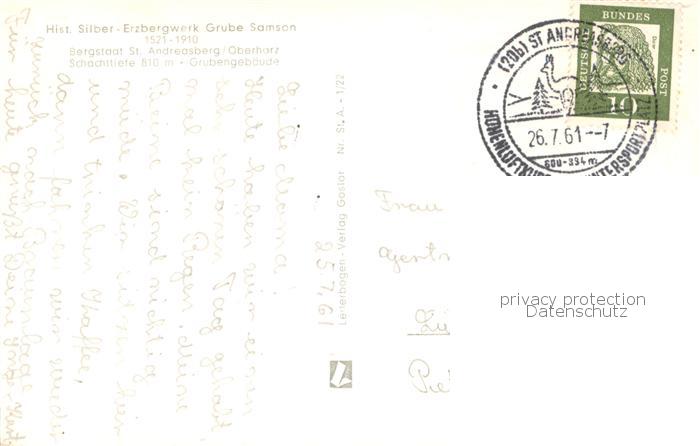 Hist. Silber-Erzbergwerk Grube Samson
1521-1910
Bergstaat St. Andreasberg/Oberharz
Schachttiefe 810 m · Grubengebäude
25.7.61
Liebe Mama!
Heute haben wir einen
schönen Tag gehabt,
mal kein Regen, meine
Beine sind richtig
müde. Wir sitzen hier
und trinken Kaffee,
dann fahren wir wieder
nach
Für heute grüßt Deine
Leiterbogen-Verlag Goslar Nr. St. A. - 1/22
(20b) ST ANDREASBERG
26.7.61--7
600-894m
HÖHENLUFTKURORT WINTERSPORTPLATZ
BUNDES
POST
DEUTSCHE
Dürer
10
Frau
privacy protection
Datenschutz